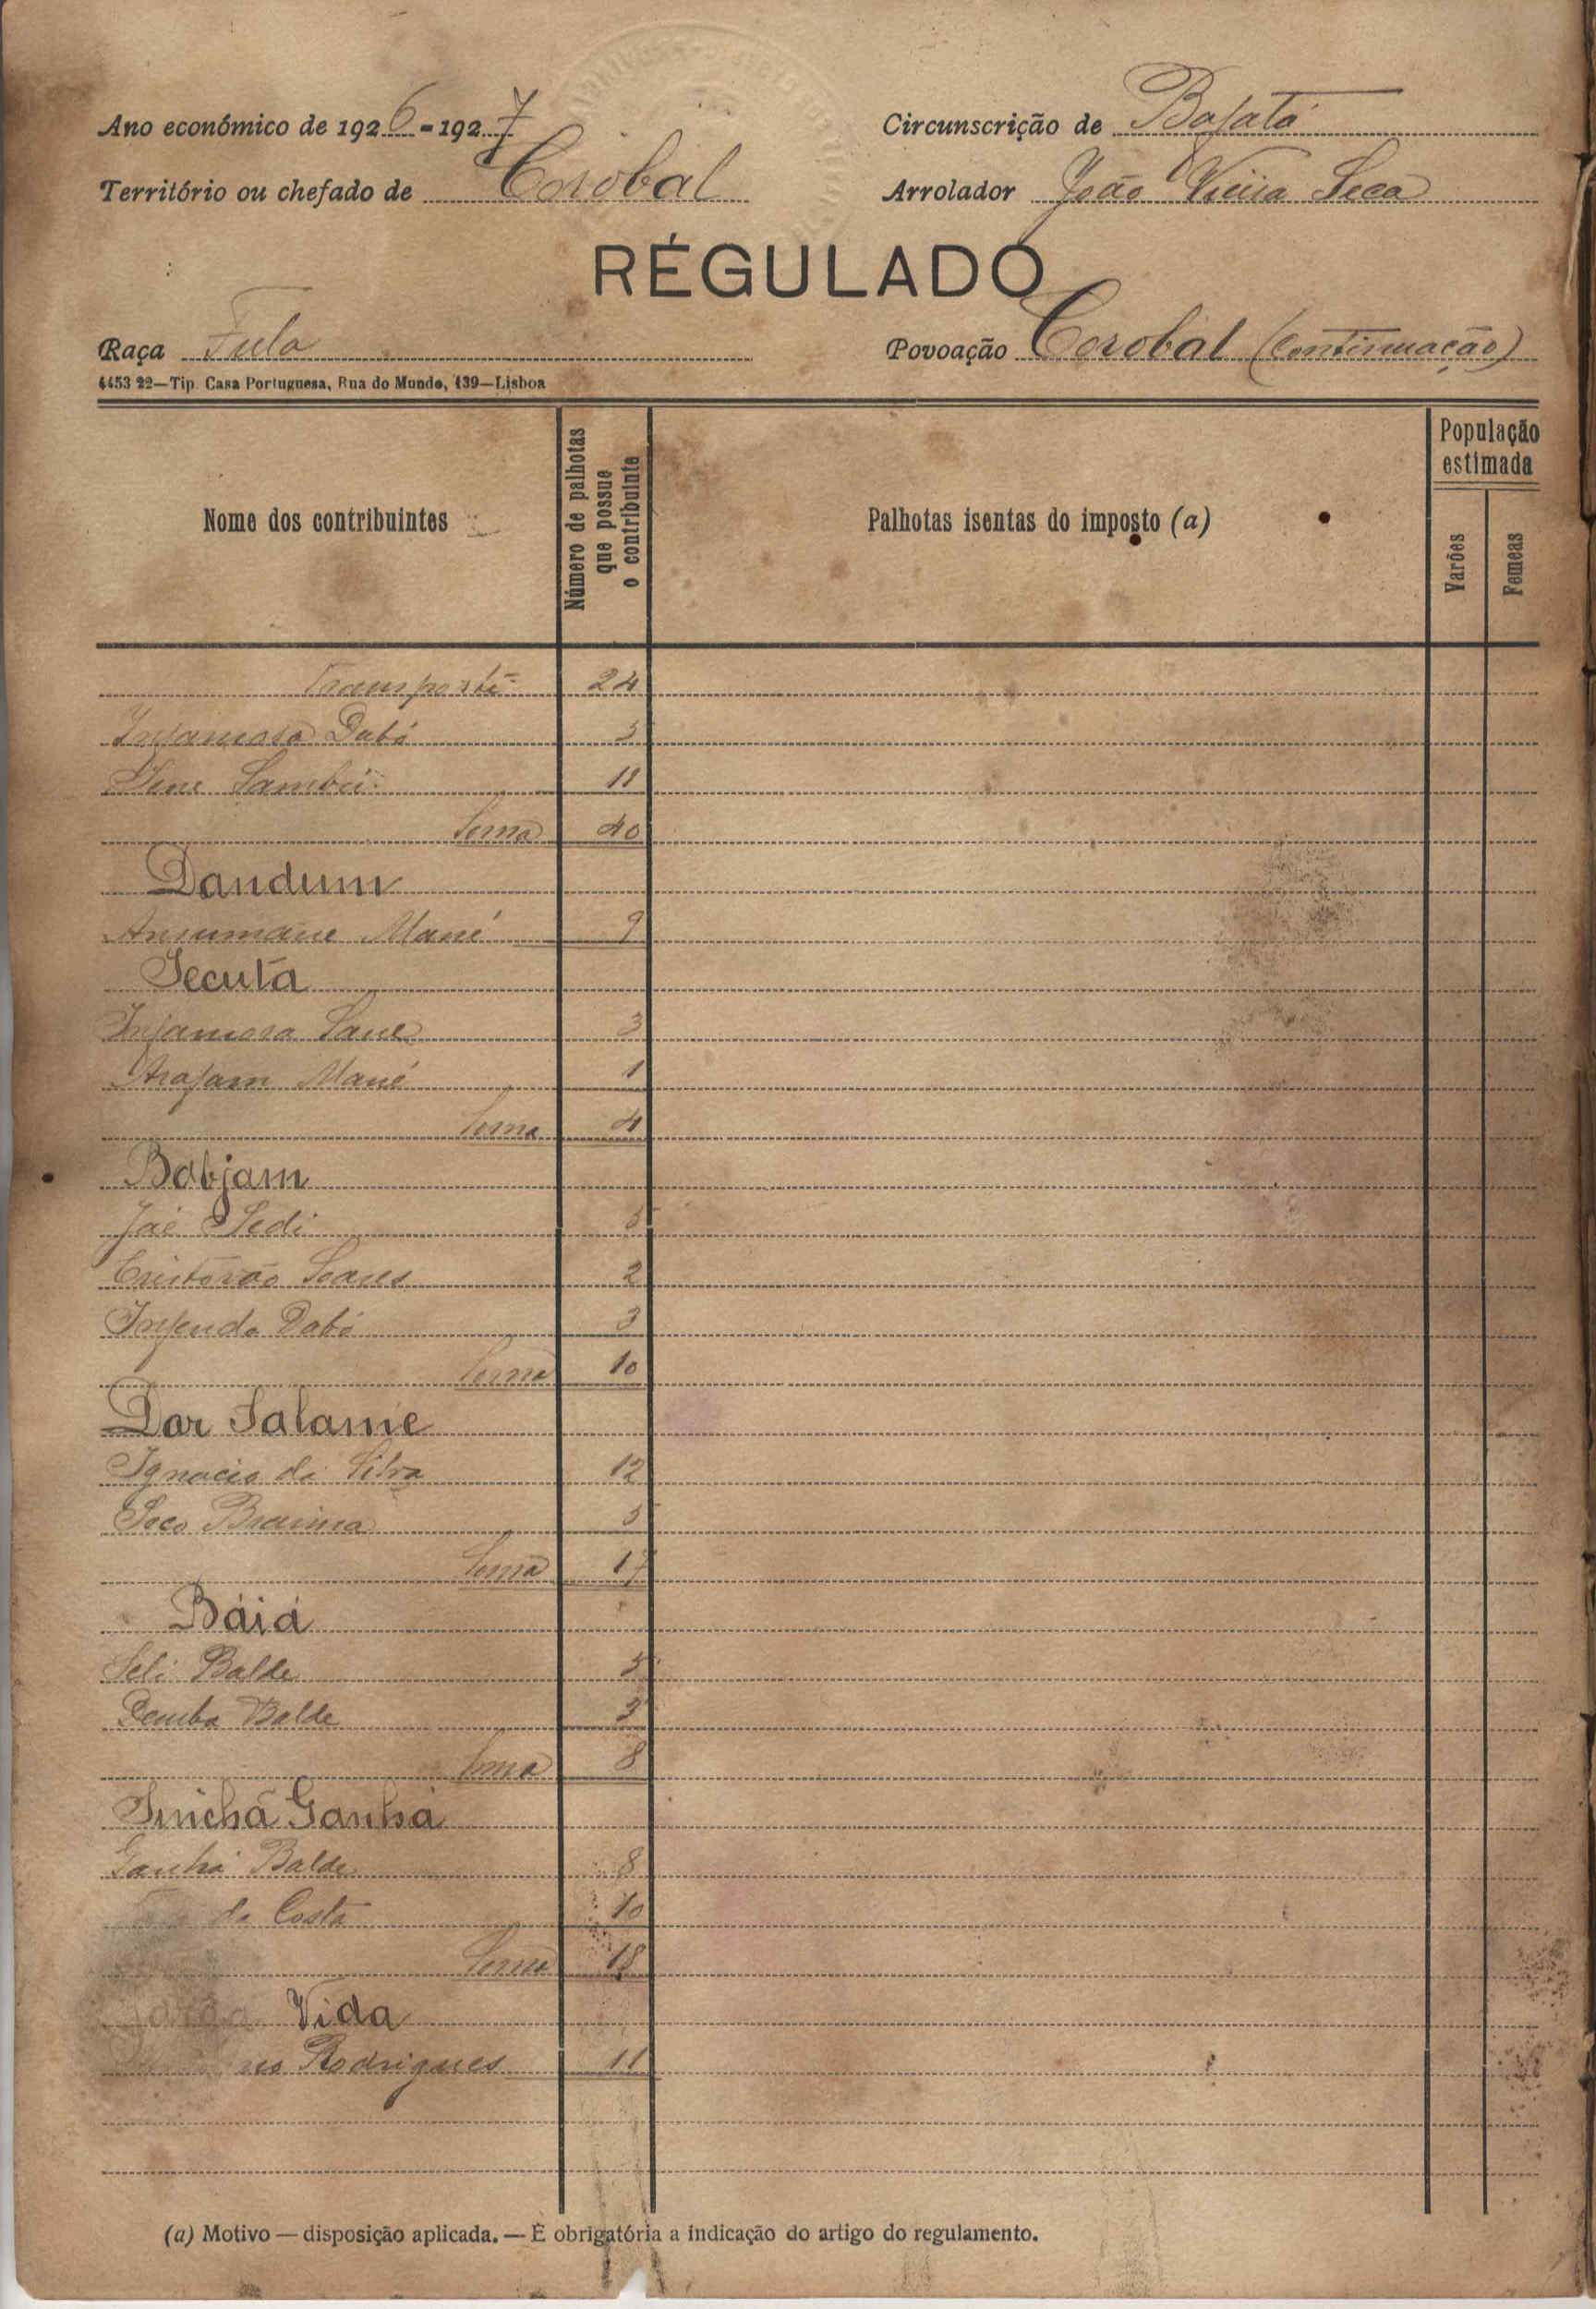 Ano económico de 1926-1927
Circunscrição de Bafatá
Território ou chefado de Corobal
Arrolador João Vieira Seca
RÉGULADO
Raça Fula
Povoação Corobal (continuação)
4453 22—Tip. Casa Portuguesa, Rua do Mundo, 139—Lisboa
Nome dos contribuintes
Número de palhotas que possue o contribuinte
Palhotas isentas do imposto (a)
População estimada
Varões
Femeas
Transporte 24
Injamosa Dabó 5
Sambú 11
Soma 40
Dandum
Ansumane Mané 9
Secutá
Injamosa Sane 3
Arafam Mané 1
Soma 4
Babjam
Jaé Sedi 5
Cristovão Soares 2
Dabó 3
Soma 10
Dar Salame
Ignacio da Silva 12
Soco Braima 5
Soma 17
Báiá
Seli Balde 5
Demba Balde 3
Soma 8
Sinchã Ganhá
Ganhá Balde 8
da Costa 10
Soma 18
Vida
Rodrigues 11
(a) Motivo — disposição aplicada. — É obrigatória a indicação do artigo do regulamento.